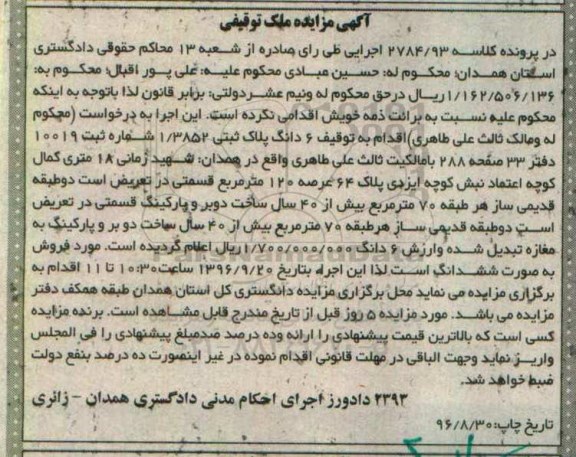 آگهی مزایده ملک توقیفی
در پرونده کلاسه ۲۷۸۴/۹۳ اجرایی طی رای صادره از شعبه ۱۳ محاکم حقوقی دادگستری
استان همدان: محکوم له: حسین عبادی محکوم علیه: علی پور اقبال: محکوم به:
۱/۱۶۲/۵۰۶/۱۳۶ریال درحق محکوم له ونیم عشردولتی: برابر قانون لذا باتوجه به اینکه
محکوم علیه نسبت به برائت ذمه خویش اقدامی نکرده است. این اجرا به درخواست (محکوم
له ومالک ثالث علی طاهری)اقدام به توقیف ۶ دانگ پلاک ثبتی ۱/۳۸۵۲ شماره ثبت ۱۰۰۱۹
دفتر ۳۳ صفحه ۲۸۸ بامالکیت ثالث علی طاهری واقع در همدان: شهید زمانی ۱۸ متری کمال
کوچه اعتماد نبش کوچه ایزدی پلاک ۶۴ عرصه ۱۲۰ مترمربع قسمتی در تعریض است دوطبقه
قدیمی ساز هر طبقه ۷۰ مترمربع بیش از ۴۰ سال ساخت دوبر و پارکینگ قسمتی در تعریض
است دوطبقه قدیمی ساز هرطبقه ۷۰ مترمربع بیش از ۴۰ سال ساخت دو بر و پارکینگ به
مغازه تبدیل شده وارزش ۶ دانگ ۱/۷۰۰/۰۰۰/۰۰۰ریال اعلام گردیده است. مورد فروش
به صورت ششدانگ است لذا این اجراء بتاریخ ۱۳۹۶/۹/۲۰ ساعت۱۰:۳۰ تا ۱۱ اقدام به
برگزاری مزایده می نماید محل برگزاری مزایده دادگستری کل استان همدان طبقه همکف دفتر
مزایده می باشد. مورد مزایده ۵ روز قبل از تاریخ مندرج قابل مشاهده است. برنده مزایده
کسی است که بالاترین قیمت پیشنهادی را ارائه وده درصد صدمبلغ پیشنهادی را فی المجلس
واریز نماید وجهت الباقی در مهلت قانونی اقدام نموده در غیر اینصورت ده درصد بنفع دولت
ضبط خواهد شد.
۲۳۹۳ دادورز اجرای احکام مدنی دادگستری همدان - زائری
تاریخ چاپ:۹۶/۸/۳۰